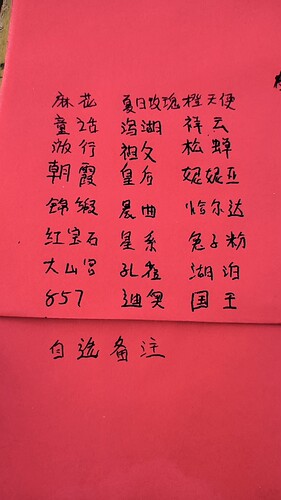 麻花 夏日玫瑰 橙天使
童话 泻湖 祥云
激行 祖父 松蝉
朝霞 皇后 妮妮亚
锦缎 晨曲 恰尔达
红宝石 星系 兔子粉
大山宫 孔雀 湖泊
857 迪奥 国王
自选备注